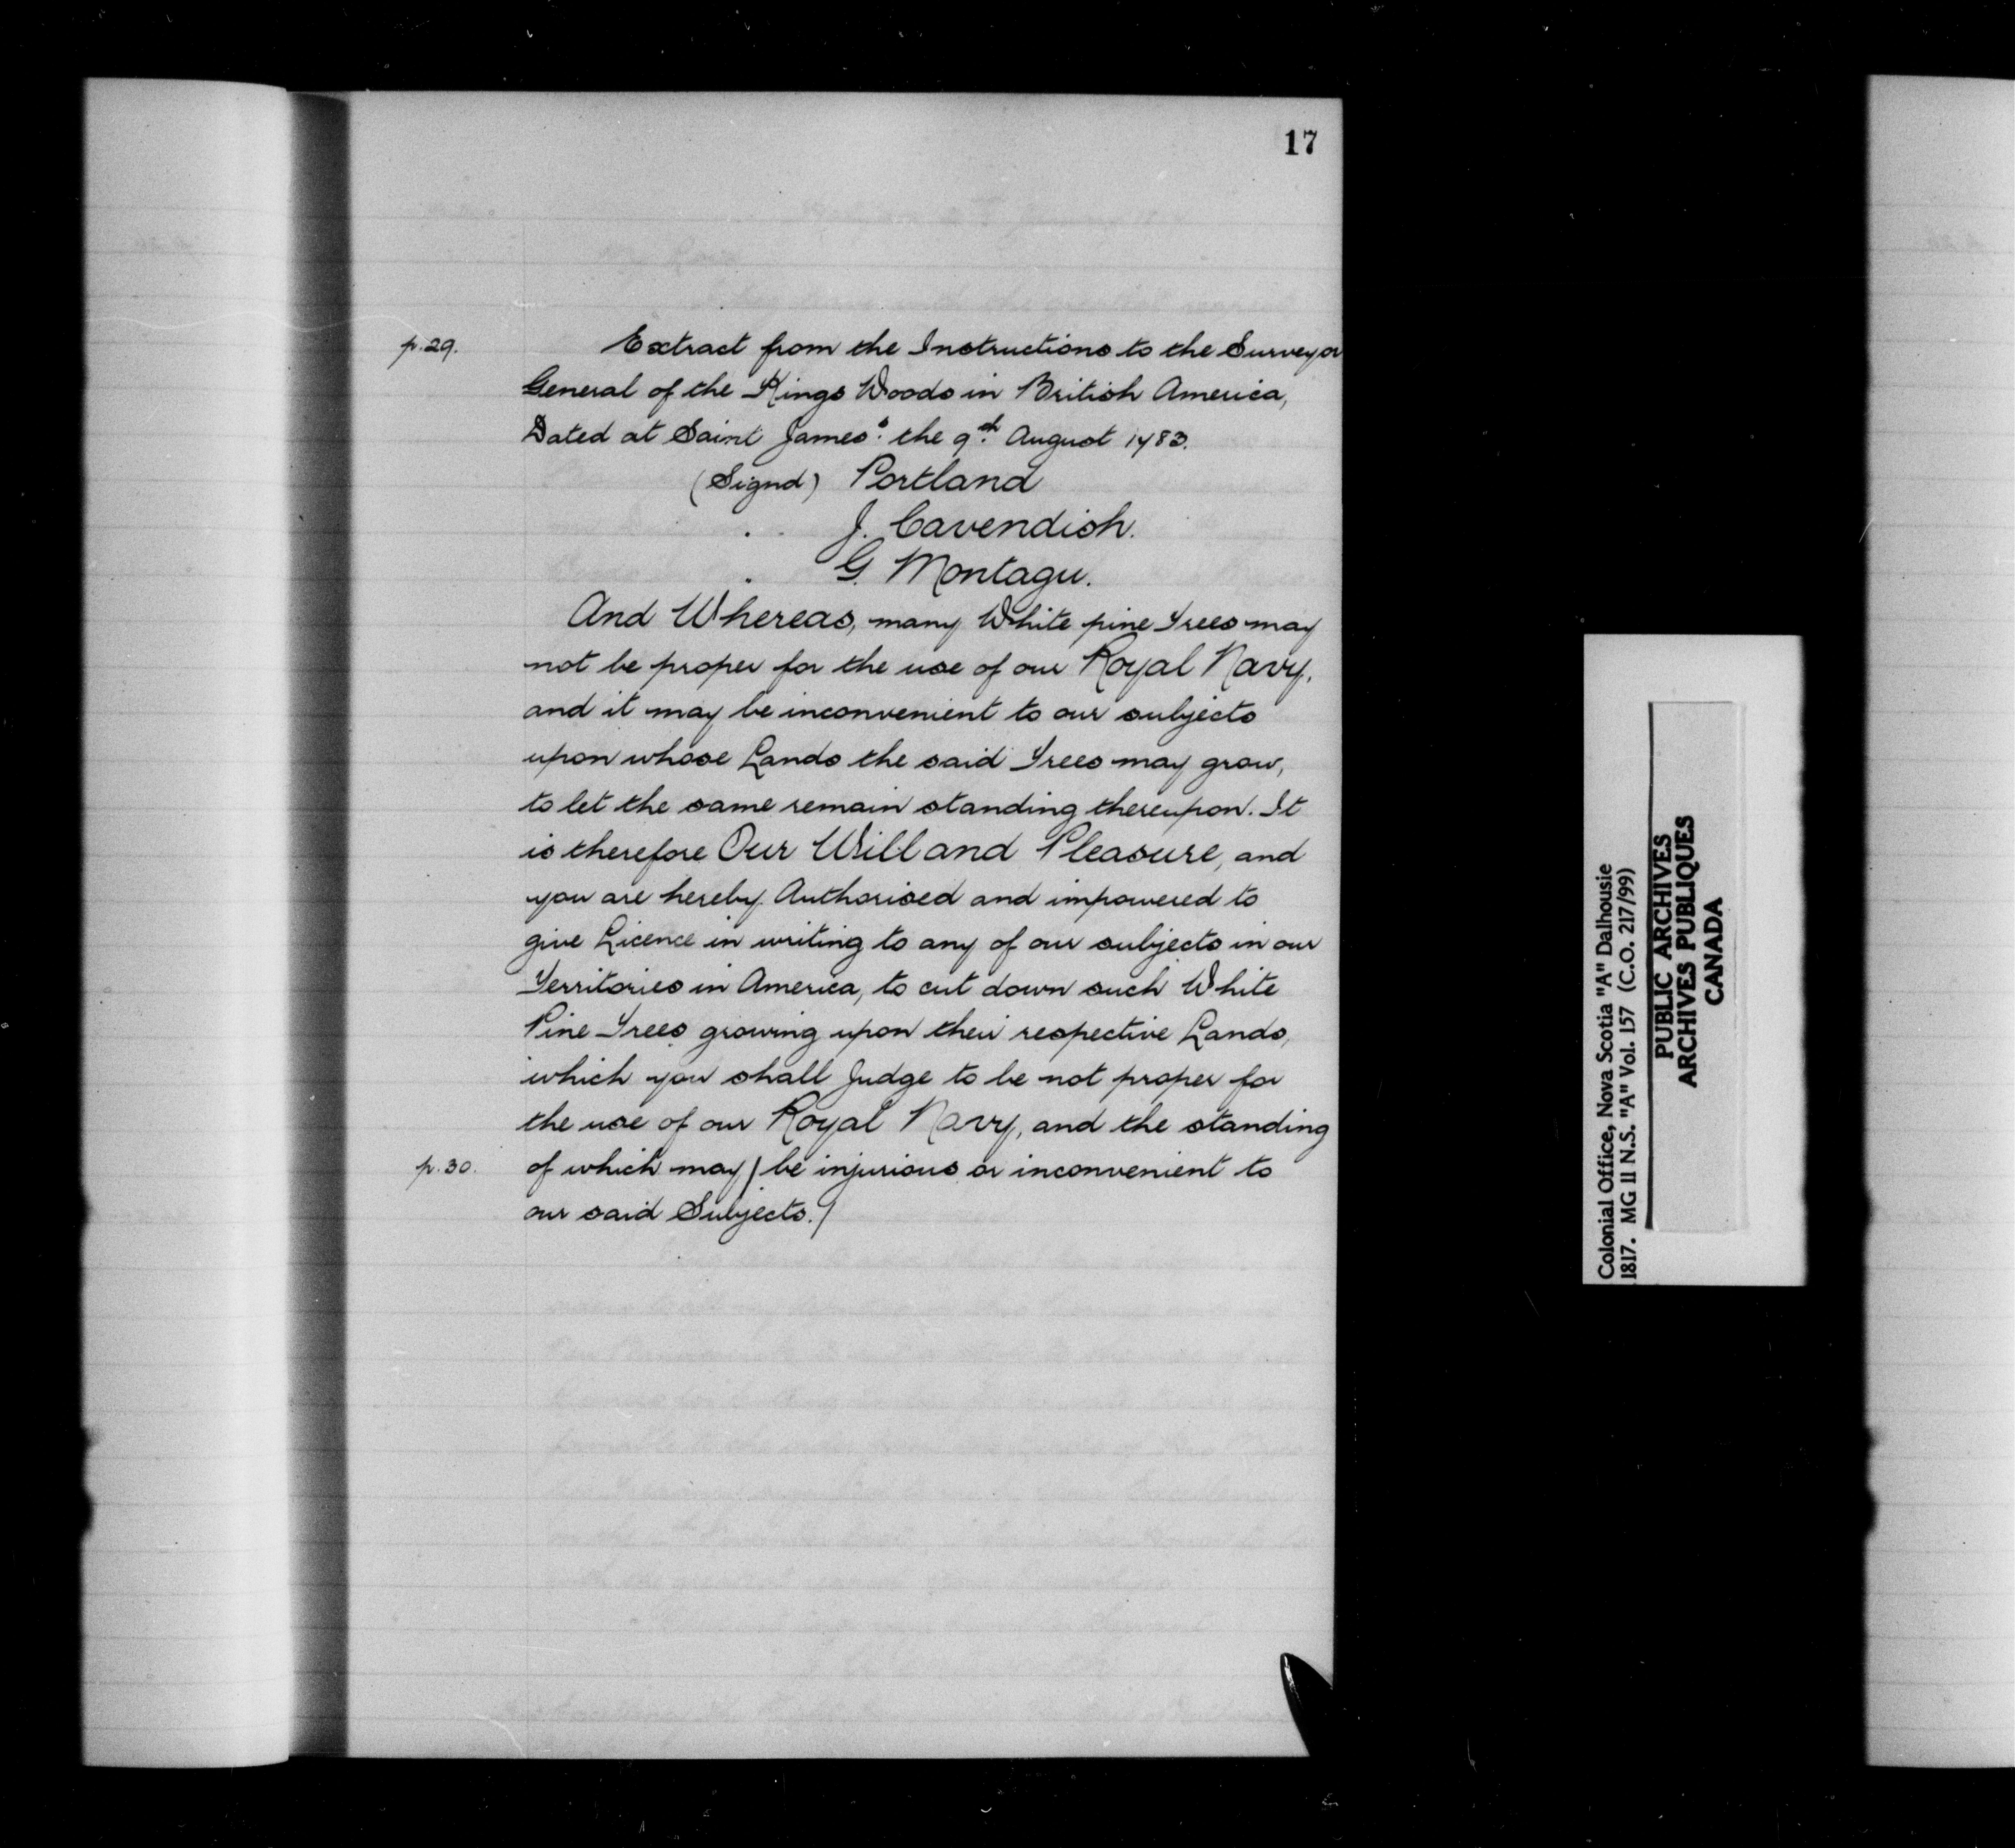 17
p.29.
Extract from the Instructions to the Surveyor
General of the Kings Woods in British America,
Dated at Saint James's the 9th August 1783.
(Signd) Portland
J. Cavendish.
G. Montagu.
And Whereas, many White pine Trees may
not be proper for the use of our Royal Navy,
and it may be inconvenient to our subjects
upon whose Lands the said Trees may grow,
to let the same remain standing thereupon. It
is therefore Our Will and Pleasure, and
you are hereby Authorised and impowered to
give Licence in writing to any of our subjects in our
Territories in America, to cut down such White
Pine Trees growing upon their respective Lands,
which you shall Judge to be not proper for
the use of our Royal Navy, and the standing
p.30.
of which may/be injurious or inconvenient to
our said Subjects./
Colonial Office, Nova Scotia "A" Dalhousie
1817. MG 11 N.S. "A" Vol. 157 (C.O. 217/99)
PUBLIC ARCHIVES
ARCHIVES PUBLIQUES
CANADA